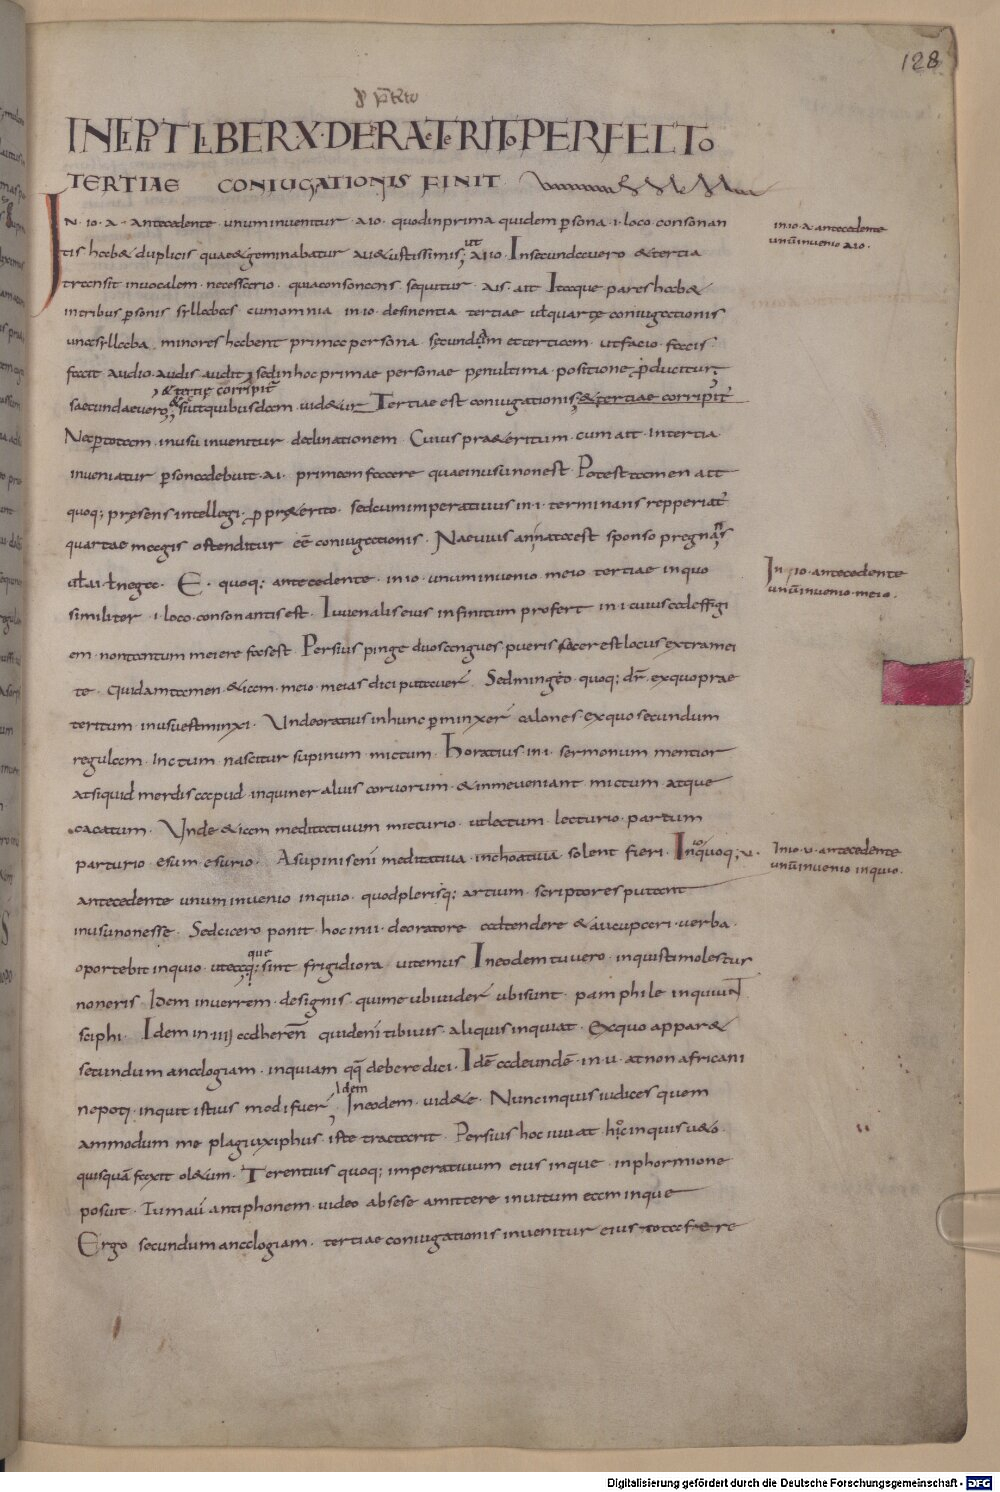 128
de p̄terito
INCIPIT LIBER X DE PRAETERITO PERFECTO
TERTIAE CONIUGATIONIS FINIT
IN · IO · A · antecedente · unum invenitur · aio · quod in prima quidem persona · i · loco consonan
tis habet duplicis quae & geminabatur · au&ustissimis; ut aiio · In secunda vero & tertia
transit in vocalem necessario · quia consonans sequitur · ais ait Itaque pares habe&
in tribus personis syllabas cum omnia · in io · desinentia tertiae uł quartę coniugationis
una syllaba minores habent primae persona · secundam et tertiam · ut facio · facis
facit audio · audis audit sed in hoc primae personae penultima positione producitur
& tertię corripit̄
saecundae vero; & sunt quibusdam vid&ur Tertiae est coniugationis; & tertiae corripit̄
Nec p totam in usu invenitur declinationem · Cuius pra&eritum · cum ait · in tertia
inveniatur persona debuit · ai · primam facere quae in usu non est Potest tamen ait
quoq; pręsens intellegi · p pr&erito · sed cum imperativus in · i · terminans repperiat̄
quartae magis ostenditur eē coniugationis · Naevius an nata est sponso pregnans
uł ai · ł nega · E · quoq; antecedente · in io · unum invenio meio tertiae in quo
similiter · i · loco consonantis est · Iuvenalis eius infinitum profert in · i · cuius ad effigi
em non tantum meiere fas est · Persius pinge duos angues pueris sacer est locus extra mei
te · Quidam tamen & iam meio meias dici putaver̄ Sed mingo quoq; dr̄ · ex quo prae
teritum in usu est minxi · Unde oratius in hunc perminxer̄ calones ex quo secundum
regulam · in ctum nascitur supinum mictum · horatius in · i · sermonum mentior
at si quid merdis caput inquiner alvis corvorum & in me veniant mictum atque
cacatum · Unde & iam meditativum micturio · ut lectum · lecturio · partum
parturio · esum esurio · A supinis eni meditativa inchoativa solent fieri · In io quoq; u ·
antecedente unum invenio inquio · quod plerisq; artium · scriptores putant
in usu non esse · Sed cicero ponit hoc in ii · de oratore ad tendere & aucupari verba
oportebit inquio · ut ea quę; que sint frigidiora vitemus In eodem tu vero inquisti molestur
non eris · Idem in verrem · de signis qui me ubi vider̄ ubi sunt pamphile inquiunt
sciphi · Idem in iiii ad heren̄ qui deni tibi vius · aliquis inquiat · Ex quo appar&
secundum analogiam · inquiam qq̄ debere dici · Idē ad eundē · in · v · at non africani
nepoti · inquit istius modi fuer̄ Idem In eodem · vid&e · Nunc inquis iudices quem
ammodum me plagiuxiphus iste tractarit Persius hoc iuvat hoc inquis u&o
quisquā faxit ol&um · Terentius quoq; imperativum eius inque in phormione
posuit · Tum au antiphonem video ab sese amittere invitum eam inque
Ergo secundum analogiam · tertiae coniugationis invenitur eius tota fere
in io · a · antecedente
unū invenio aio ·
In · io · antecedente
unū invenio meio ·
In io · u · antecedente
unū invenio inquio ·
Digitalisierung gefördert durch die Deutsche Forschungsgemeinschaft - DFG